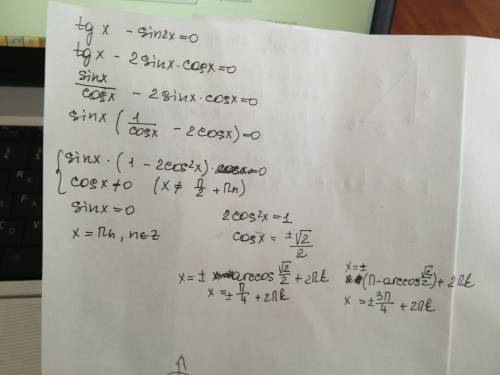 tg x - sin2x=0
tg x - 2sinx·cosx=0
sinx/cosx - 2sinx·cosx=0
sinx (1/cosx - 2cosx)=0
{ sinx·(1 - 2cos²x)=0
cosx≠0 (x≠ π/2 + πn)
sinx=0
x=πn, n∈Z
2cos²x=1
cosx= ±√2/2
x=± arccos √2/2 + 2πk
x=± π/4 + 2πk
x=±
(π-arccos √2/2)+2πk
x =± 3π/4 + 2πk
π